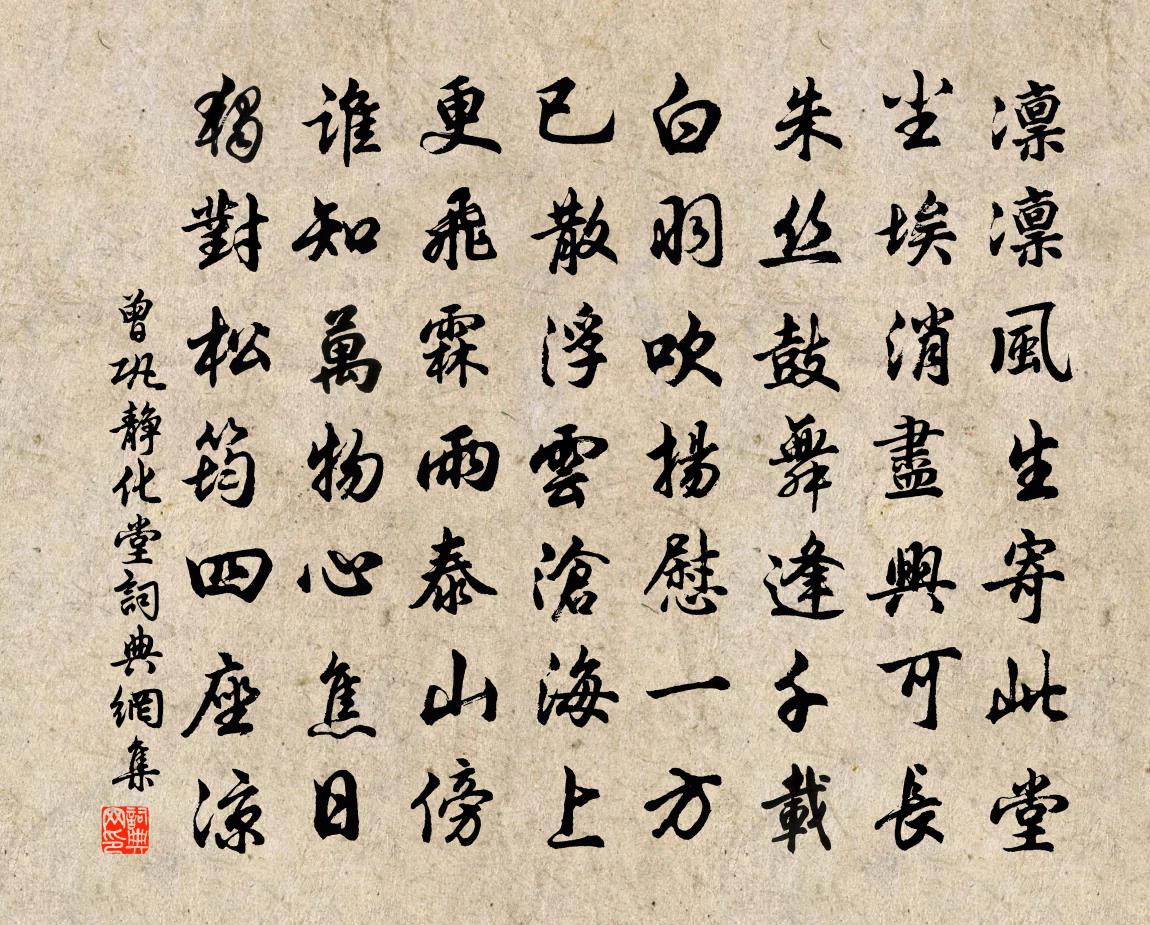 凛凛風生寄此堂
尘埃消盡興可長
朱丝鼓舞逢千載
白羽吹揚慰一方
已散浮雲滄海上
更飛霖雨泰山傍
誰知萬物心焦日
獨對松筠四座涼
曾巩静化堂詞典網集
詞典网印